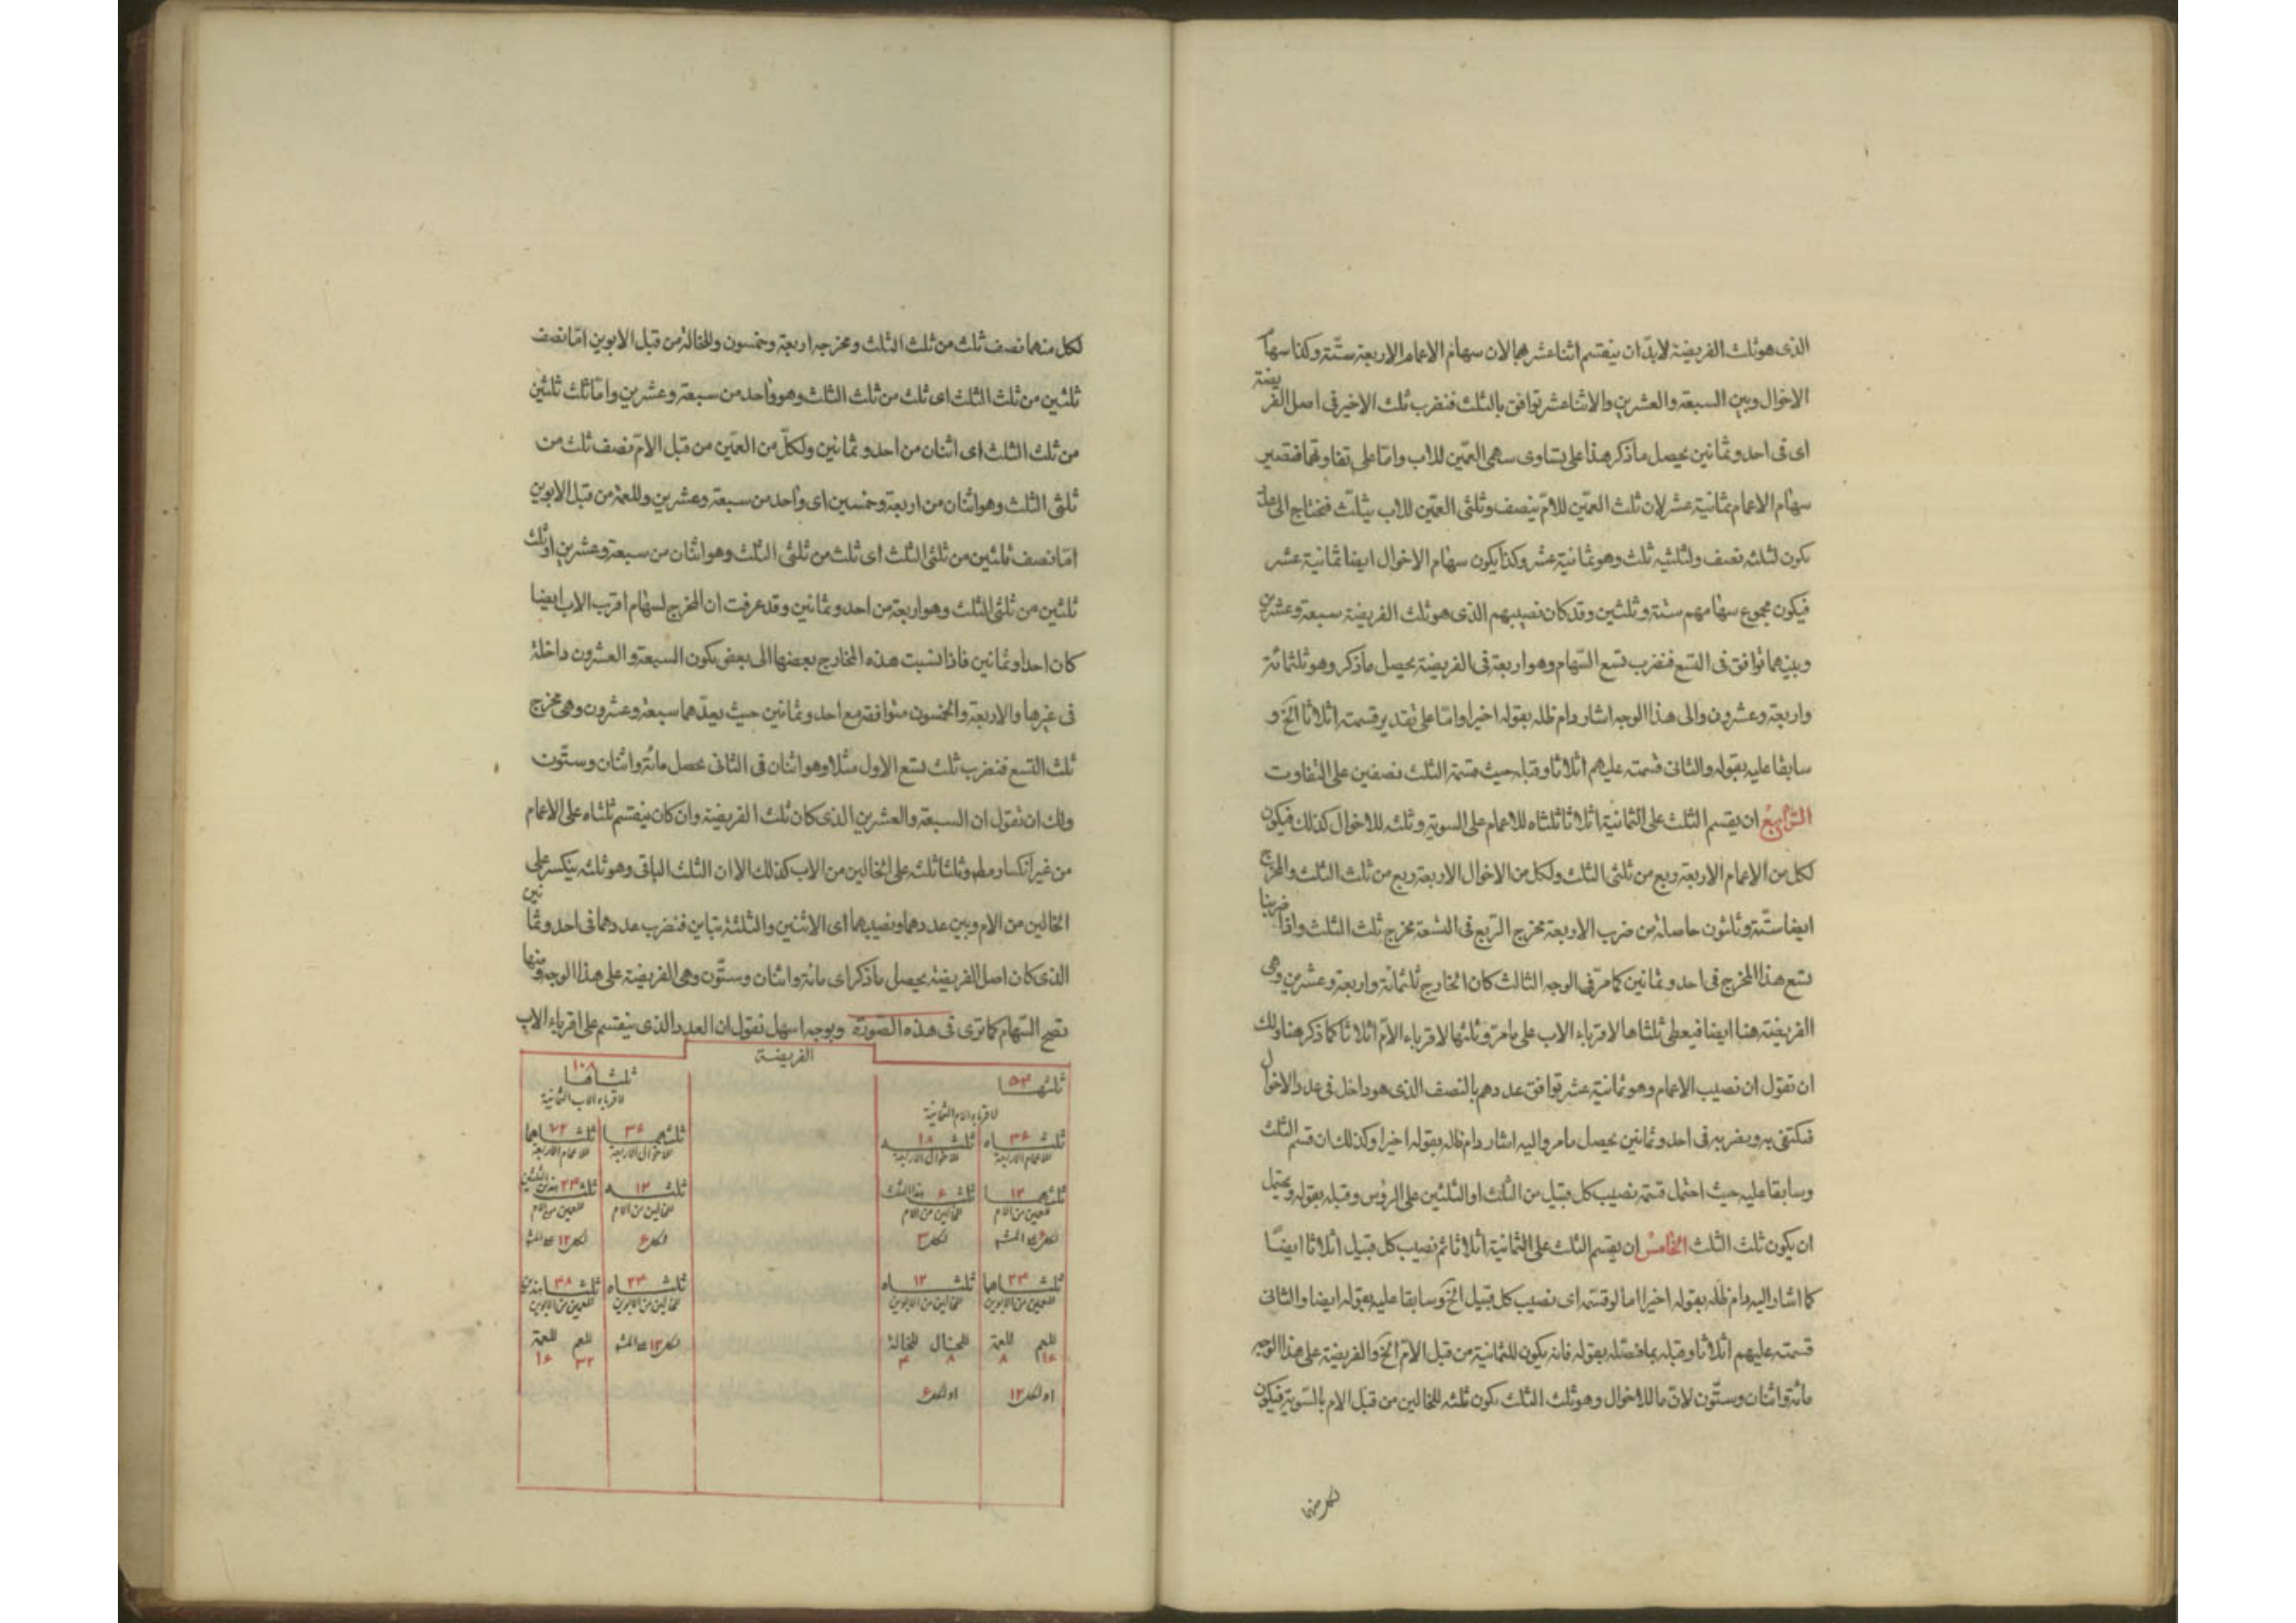 الذى هو ثلث الفريضة لابد ان ينقسم اثنا عشرهما لان سهام الاعمام الاربعة ستّة وكذا سهام
الاخوال وبين السبعة والعشرين والاثنا عشر توافق بالثلث فنضرب ثلث الاخير فى اصل الفريضة
اى فى احد وثمانين يحصل ما ذكر هذا على تساوى سهمى العمّين للاب وامّا على تفاوتهما فتصير
سهام الاعمام ثمانية عشر لان ثلث العمّين للامّ ينصف وثلثى العمّين للاب يثلّث فنحتاج الى عدد
يكون لثلثه نصف ولثلثيه ثلث وهو ثمانية عشر وكذا يكون سهام الاخوال ايضا ثمانية عشر
فيكون مجموع سهامهم ستة وثلثين وقد كان نصيبهم الذى هو ثلث الفريضة سبعة وعشرين
وبينهما توافق فى التسع فنضرب تسع السّهام وهو اربعة فى الفريضة يحصل ما ذكر وهو ثلثمائة
واربعة وعشرون والى هذا الوجه اشار دام ظله بقوله اخيرا وامّا على تقدير قسمته اثلاثا الخ و
سابقا عليه بقوله والثانى قسمته عليهم اثلاثا وقبله حيث قسمة الثلث نصفين على التفاوت
الرّابع ان يقسم الثلث على الثمانية اثلاثا ثلثاه للاعمام على السوية وثلثه للاخوال كذلك فيكون
لكل من الاعمام الاربعة ربع من ثلثى الثلث ولكل من الاخوال الاربعة ربع من ثلث الثلث والمخرج
ايضا ستّة وثلثون حاصلة من ضرب الاربعة مخرج الرّبع فى التسعة مخرج ثلث الثلث واذا ضربنا
تسع هذا المخرج فى احد وثمانين كما مرّ فى الوجه الثالث كان الخارج ثلثمائة واربعة وعشرين وهى
الفريضة هنا ايضا فيعطى ثلثاها لاقرباء الاب على ما مرّ وثلثها لاقرباء الامّ اثلاثا كما ذكر هنا ولك
ان تقول ان نصيب الاعمام وهو ثمانية عشر توافق عددهم بالنصف الذى هو داخل فى عدد الاخوال
فنكتفى به ويضربه فى احد وثمانين يحصل ما مر واليه اشار دام ظله بقوله اخيرا وكذلك ان قسم الثلث
وسابقا عليه حيث احتمل قسمة نصيب كل قبيل من الثلث او الثلثين على الرؤس وقبله بقوله ويحتمل
ان يكون ثلث الثلث الخامس ان يقسم الثلث على الثمانية اثلاثا ثم نصيب كل قبيل اثلاثا ايضًا
كما اشار اليه دام ظله بقوله اخيرا اما لو قسمة اى نصيب كل قبيل الخ وسابقا عليه بقوله ايضا والثانى
قسمته عليهم اثلاثا وقبله بما فصّله بقوله فانه يكون للثمانية من قبل الامّ الخ والفريضة على هذا الوجه
مائة واثنان وستّون لانّ ما للاخوال وهو ثلث الثلث يكون ثلثه للخالين من قبل الام بالسّوية فيكون
لكل منهما
لكل منهما نصف ثلث من ثلث الثلث ومخرجه اربعة وخمسون وللخالة من قبل الابوين امّا نصف
ثلثين من ثلث الثلث اى ثلث من ثلث الثلث وهو واحد من سبعة وعشرين وامّا ثلث ثلثين
من ثلث الثلث اى اثنان من احد وثمانين ولكلّ من العمّين من قبل الامّ نصف ثلث من
ثلثى الثلث وهو اثنان من اربعة وخمسين اى واحد من سبعة وعشرين وللعمّة من قبل الابوين
امّا نصف ثلثين من ثلثى الثلث اى ثلث من ثلثى الثلث وهو اثنان من سبعة وعشرين او ثلث
ثلثين من ثلثى الثلث وهو اربعة من احد وثمانين وقد عرفت ان المخرج لسهام اقرب الاب ايضا
كان احدا وثمانين فاذا نسبت هذه المخارج بعضها الى بعض يكون السبعة والعشرون داخلة
فى غيرها والاربعة والخمسون متوافقة مع احد وثمانين حيث يعدّهما سبعة وعشرون وهى مخرج
ثلث التسع فنضرب ثلث تسع الاول مثلا وهو اثنان فى الثانى يحصل مائة واثنان وستّون
ولك ان تقول ان السبعة والعشرين الذى كان ثلث الفريضة وان كان ينقسم ثلثاه على الاعمام
من غير انكسار مطلقا وثلثا ثلثه على الخالين من الاب كذلك الا ان الثلث الباقى وهو ثلثه ينكسر على
الخالين من الام وبين عددهما ونصيبهما اى الاثنين والثلثة تباين فنضرب عددهما فى احد وثمانين
الذى كان اصل الفريضة يحصل ما ذكر اى مائة واثنان وستّون وهى الفريضة على هذا الوجه ومنها
تصح السّهام كما ترى فى هذه الصّورة وبوجه اسهل نقول ان العدد الذى ينقسم على اقرباء الاب
الفريضة
ثلثها ٥٤ ثلثاها ١٠٨
لاقرباء الام الثمانية لاقرباء الاب الثمانية
ثلثاه ٣۶ ثلثه ١٨ ثلثهما ٣۶ ثلثاهما ٧٢
للاعمام الاربعة للاخوال الاربعة للاخوال الاربعة للاعمام الاربعة
ثلثهما ١٢ ثلث ۶ هذا الثلث ثلثه ١٢ ثلث ٢۴ هذين الثلثين
للعمين من الام للخالين من الام للخالين من الام للعمين من الام
لكل ۶ لكل ٣ لكل ۶ لكل ١٢
ثلثاها ٢۴ ثلثاه ١٢ ثلثاه ٢۴ ثلثا ۴٨ هذين
للعمين من الابوين للخالين من الابوين للخالين من الابوين للعمين من الابوين
للعم للعمة للخال للخالة لكل ١٢ للعم للعمة
١۶ ٨ ٨ ۴ ٣٢ ١۶
او لكل ١٢ او لكل ۶